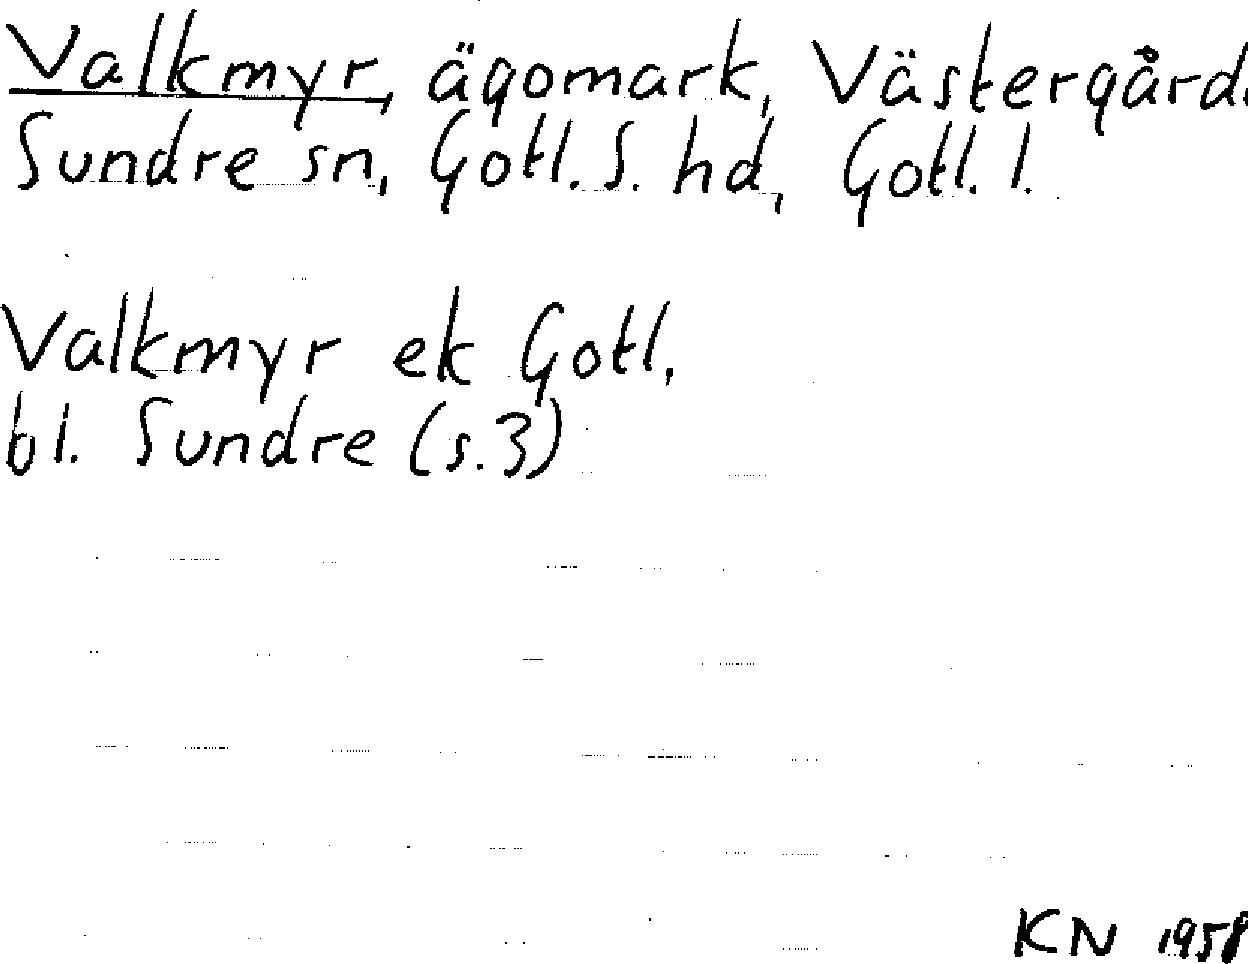 Valkmyr, ägomark, Västergård.
Sundre sn, Gotl. S. hd, Gotl. l.
Valkmyr ek Gotl.
bl. Sundre (s.3)
KN 1958